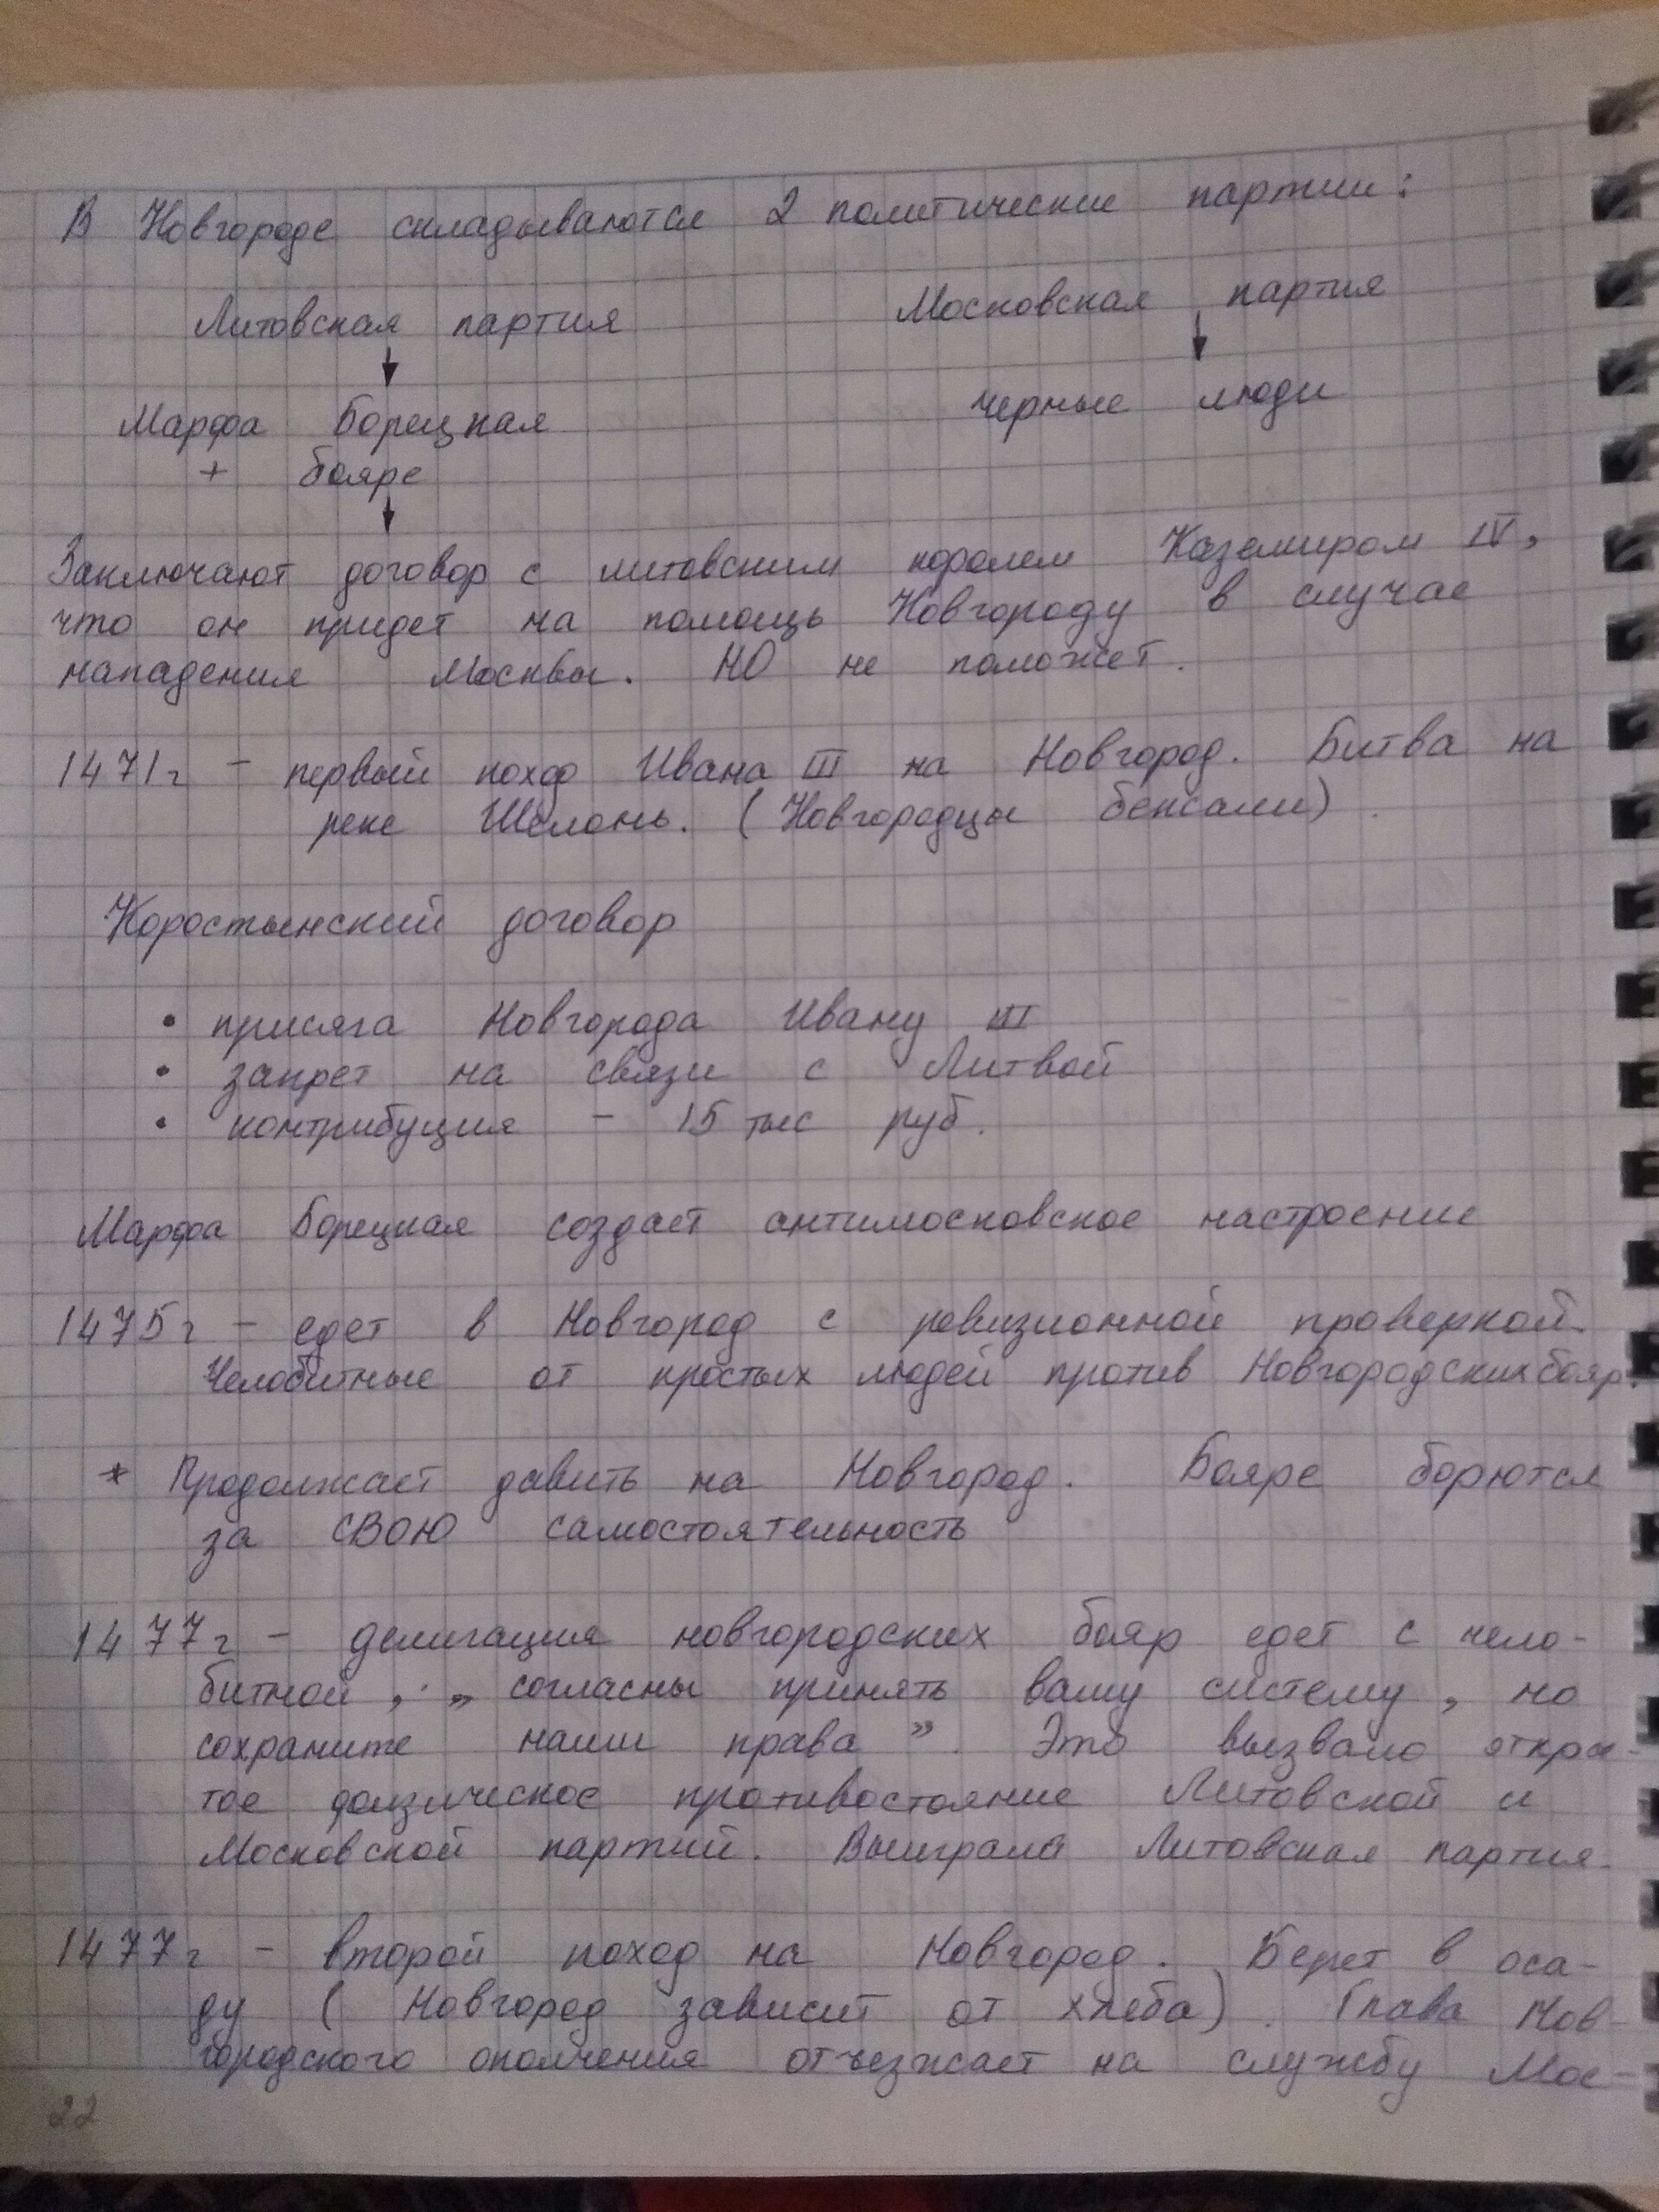 В Новгороде складываются 2 политические партии:
Литовская партия Московская партия
Марфа Борецкая черные люди
+ бояре
Заключают договор с литовским королем Каземиром IV,
что он придет на помощь Новгороду в случае
нападения Москвы. НО не поможет.
1471г - первый поход Ивана III на Новгород. Битва на
реке Шелонь. (Новгородцы бежали)
Коростынский договор
• присяга Новгорода Ивану III
• запрет на связи с Литвой
• контрибуция - 15 тыс руб.
Марфа Борецкая создает антимосковское настроение
1475г - едет в Новгород с ревизионной проверкой.
Челобитные от простых людей против Новгородских бояр.
* Продолжает давить на Новгород. Бояре борются
за СВОЮ самостоятельность
1477г - делигация новгородских бояр едет с чело-
битной, „ согласны принять вашу систему, но
сохраните наши права ". Это вызвало откры-
тое противостояние Литовской и
Московской партий. Выиграла Литовская партия.
1477г - второй поход на Новгород. Берет в оса-
ду ( Новгород зависит от хлеба). Глава Нов-
городского ополчения отъезжает на службу Мос-
22